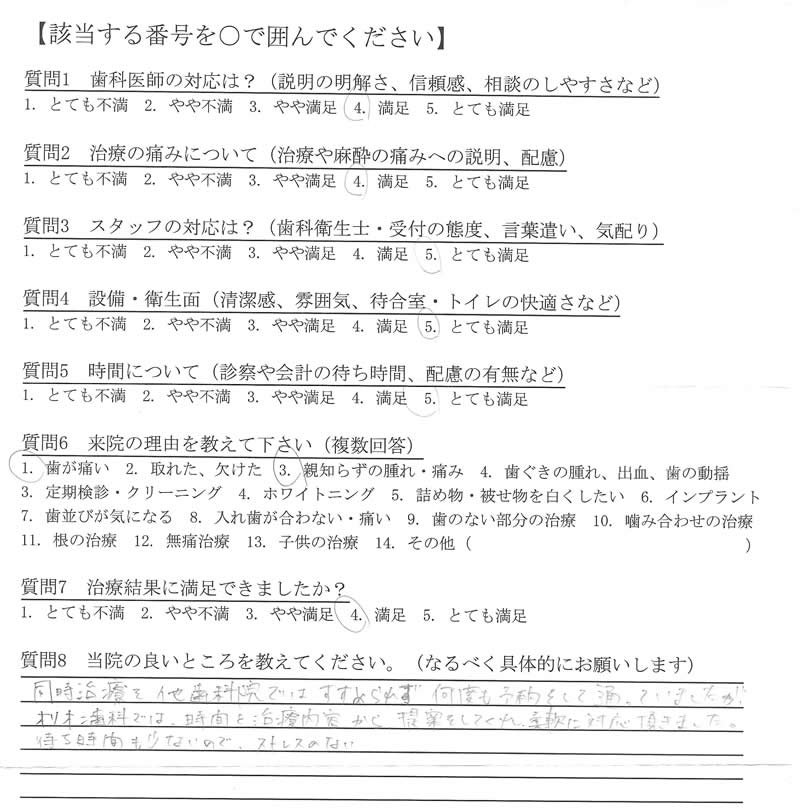 【該当する番号を○で囲んでください】
質問1　歯科医師の対応は？（説明の明解さ、信頼感、相談のしやすさなど）
1. とても不満　2. やや不満　3. やや満足　4. 満足　5. とても満足
質問2　治療の痛みについて（治療や麻酔の痛みへの説明、配慮）
1. とても不満　2. やや不満　3. やや満足　4. 満足　5. とても満足
質問3　スタッフの対応は？（歯科衛生士・受付の態度、言葉遣い、気配り）
1. とても不満　2. やや不満　3. やや満足　4. 満足　5. とても満足
質問4　設備・衛生面（清潔感、雰囲気、待合室・トイレの快適さなど）
1. とても不満　2. やや不満　3. やや満足　4. 満足　5. とても満足
質問5　時間について（診察や会計の待ち時間、配慮の有無など）
1. とても不満　2. やや不満　3. やや満足　4. 満足　5. とても満足
質問6　来院の理由を教えて下さい（複数回答）
1. 歯が痛い　2. 取れた、欠けた　3. 親知らずの腫れ・痛み　4. 歯ぐきの腫れ、出血、歯の動揺
3. 定期検診・クリーニング　4. ホワイトニング　5. 詰め物・被せ物を白くしたい　6. インプラント
7. 歯並びが気になる　8. 入れ歯が合わない・痛い　9. 歯のない部分の治療　10. 噛み合わせの治療
11. 根の治療　12. 無痛治療　13. 子供の治療　14. その他（　　　　　　　　　　　　　　　）
質問7　治療結果に満足できましたか？
1. とても不満　2. やや不満　3. やや満足　4. 満足　5. とても満足
質問8　当院の良いところを教えてください。（なるべく具体的にお願いします）
同時治療を他歯科院ではすすめられず何度も予約をして通っていましたが
オリオン歯科では、時間と治療内容から提案をしてくれ、柔軟に対応頂きました。
待ち時間も少ないので、ストレスのない